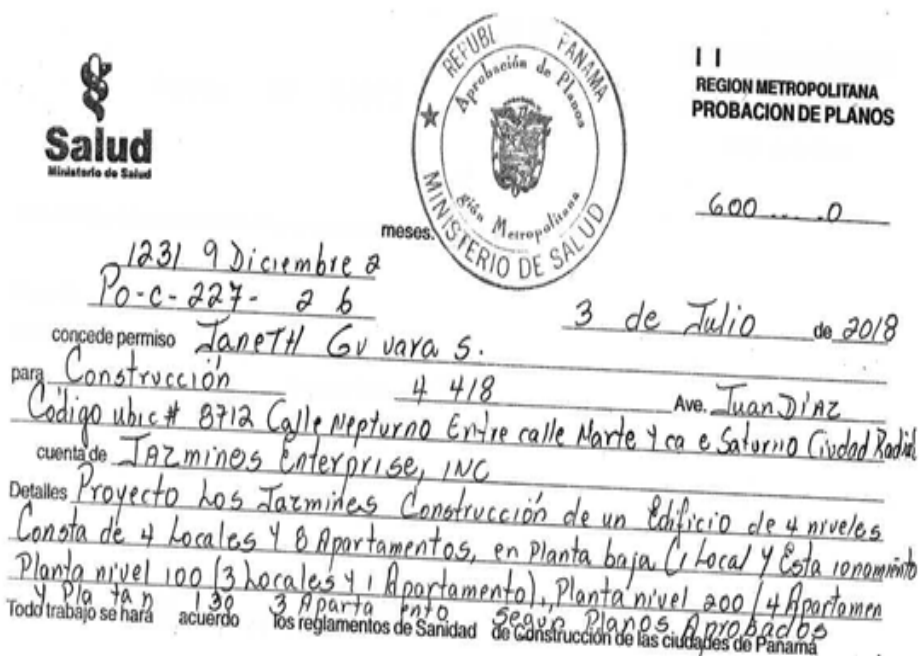 Salud
Ministerio de Salud
REPUBL PANAMA
Aprobación de Planos
gión Metropolitana
MINISTERIO DE SALUD
REGION METROPOLITANA
PROBACION DE PLANOS
600 .... .0
meses.
1231 9 Diciembre 2
Po-c-227- 2 6
3 de Julio de 2018
concede permiso JaneTH Gu vara S.
para Construcción 4 418 Ave. Juan Díaz
Código ubic # 8712 Calle Nepturno Entre calle Marte y ca e Saturno Ciudad Radial
cuenta de JAZmines Enterprise, INC
Detalles Proyecto Los Jazmines Construcción de un Edificio de 4 niveles
Consta de 4 Locales Y 8 Apartamentos, en Planta baja (1 Local y Esta ionamiento
Planta nivel 100 (3 Locales y 1 Apartamento), Planta nivel 200 (4 Apartamen
y Pla ta n 130 3 Aparta ento Segun Planos Aprobados
Todo trabajo se hará acuerdo los reglamentos de Sanidad de Construcción de las ciudades de Panamá